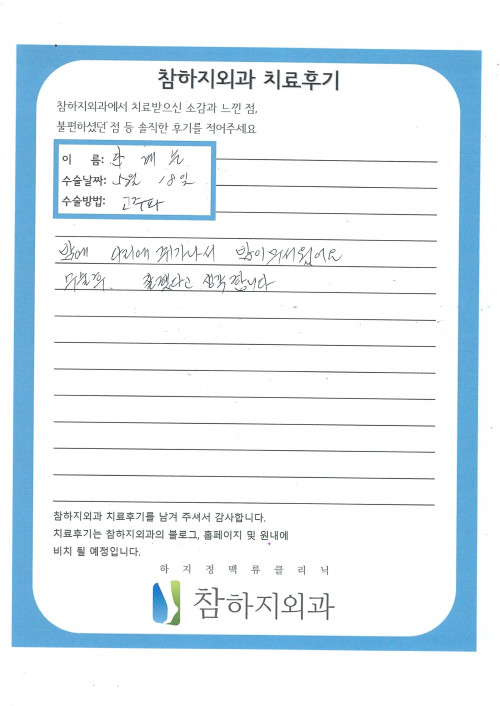 참하지외과 치료후기
참하지외과에서 치료받으신 소감과 느낀 점,
불편하셨던 점 등 솔직한 후기를 적어주세요
이 름:
수술날짜: 5월 18일
수술방법: 고주파
밤에 다리에 쥐가나서 많이
잘했다고 생각합니다
참하지외과 치료후기를 남겨 주셔서 감사합니다.
치료후기는 참하지외과의 블로그, 홈페이지 및 원내에
비치 될 예정입니다.
하지정맥류클리닉
참하지외과